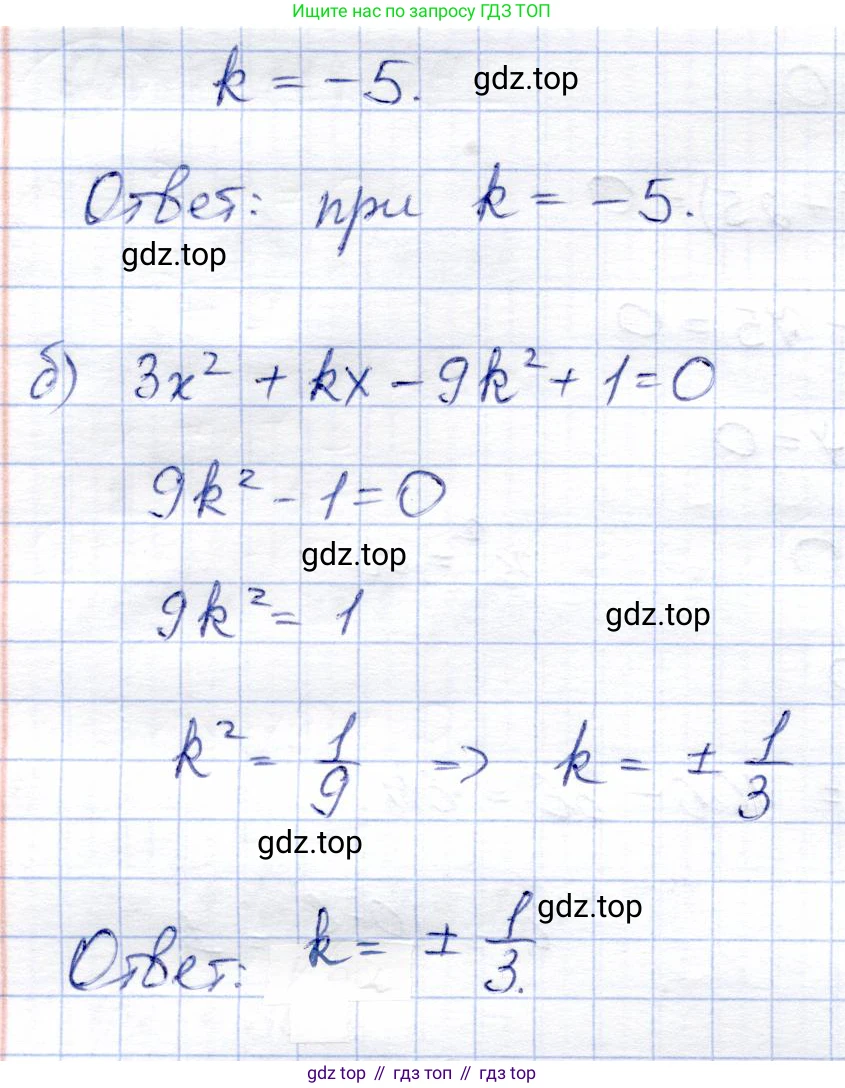 Ищите нас по запросу ГДЗ ТОП
k = -5. gdz.top
Ответ: при k = -5.
gdz.top
б) 3x² + kx - 9k² + 1 = 0
9k² - 1 = 0
gdz.top
9k² = 1 gdz.top
k² = 1/9 => k = ± 1/3
gdz.top
gdz.top
Ответ: k = ± 1/3.
gdz.top // гдз топ // gdz.top